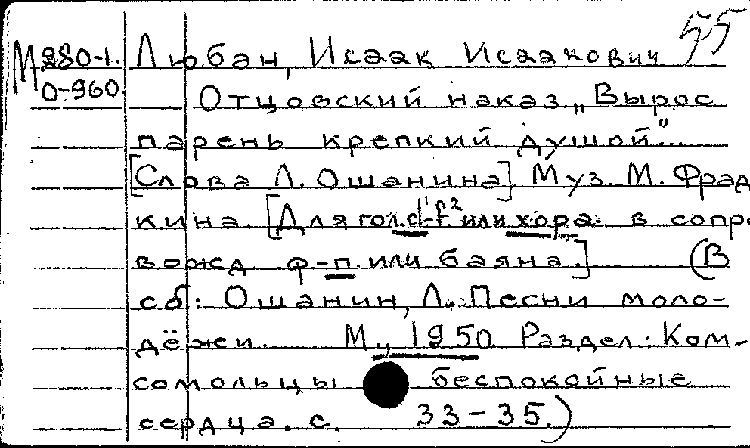 55
М280-1. Любан, Исаак Исаакович
0-960. Отцовский наказ „Вырос
парень крепкий душой".
[Слова Л. Ошанина] Муз. М. Фрад
кина [Для гол. d¹-f² или хора в сопро
вожд ф-п. или баяна.] (В
сб: Ошанин, Л. Песни моло-
дёжи. М., 1950 Раздел: Ком-
сомольцы беспокойные
сердца. с. 33-35.)